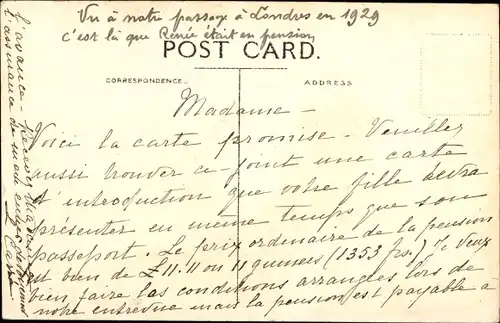 Vu à notre passage à Londres en 1929
c'est là que Renée était en pension
POST CARD.
CORRESPONDENCE.
ADDRESS
Madame -
Voici la carte promise. Veuillez
aussi trouver ci-joint une carte
d'introduction que votre fille devra
présenter en même temps que son
passeport. Le prix ordinaire de la pension
est bien de £11.11 ou 11 guinées (1353 frs.) Je veux
bien faire les conditions arrangées lors de
notre entrevue mais la pension est payable à
l'avance - Recevez Madame
l'assurance de mes